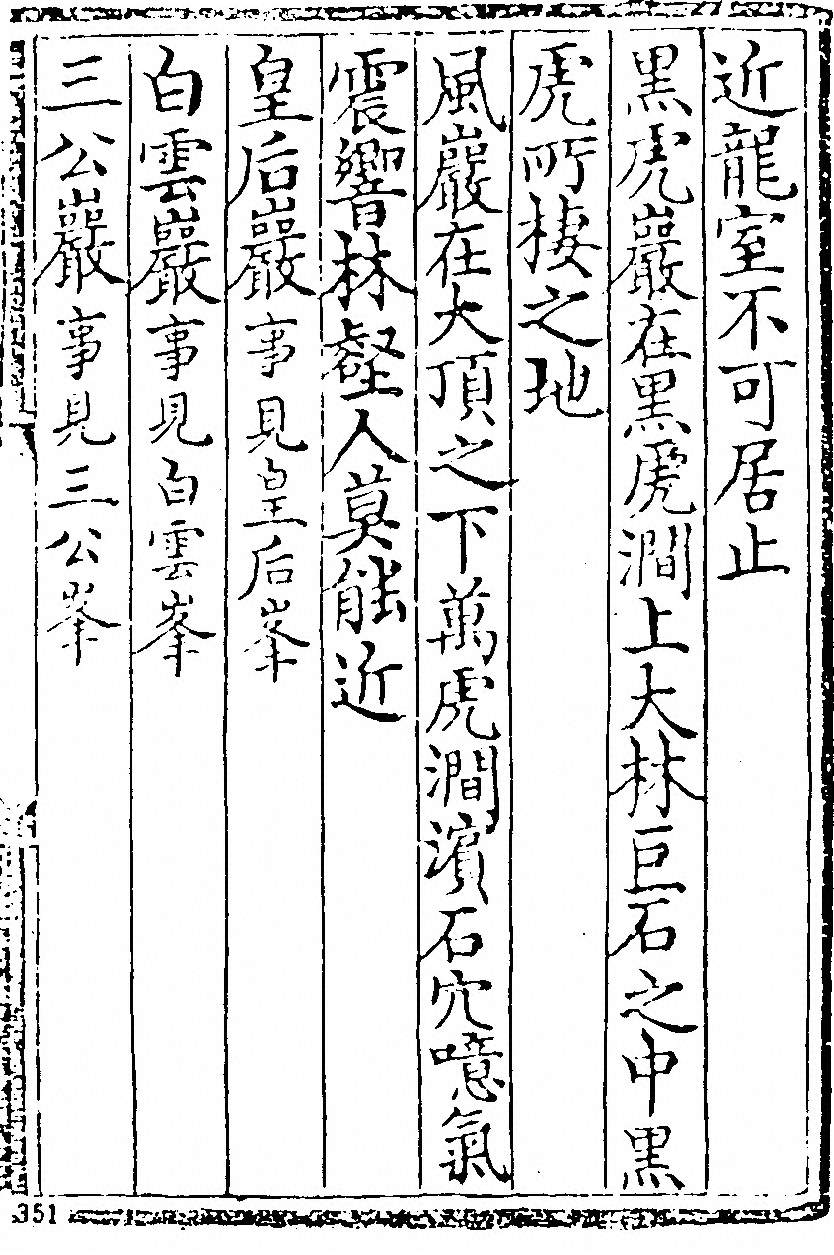 近龍室不可居止
黑虎巖在黑虎澗上大林巨石之中黑
虎所棲之地
風巖在大頂之下萬虎澗濱石穴噫氣
震響林壑人莫能近
皇后巖事見皇后峯
白雲巖事見白雲峯
三公巖事見三公峯
351